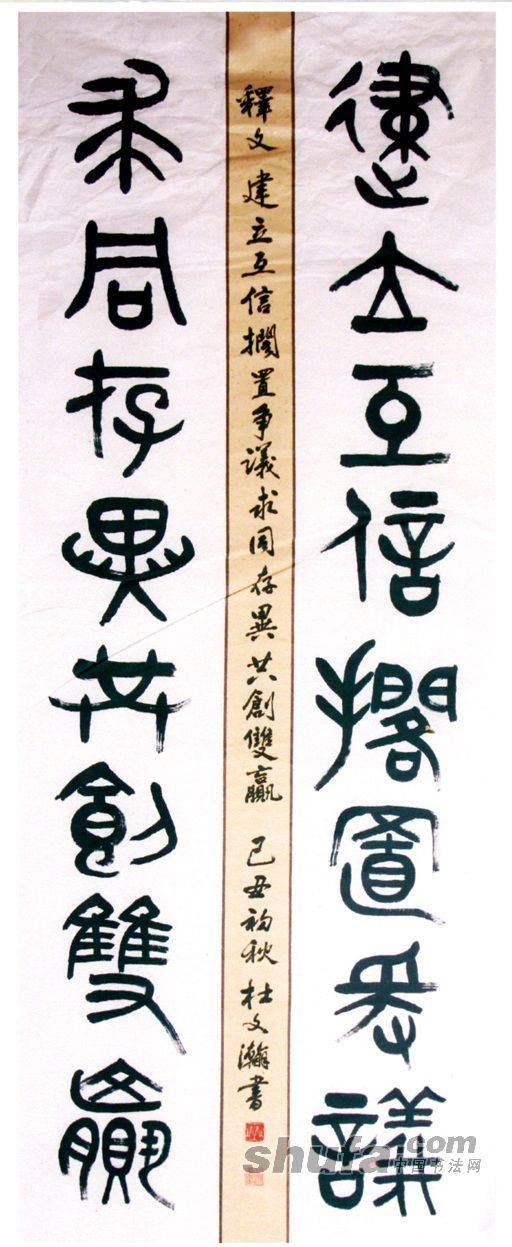 建立互信擱置爭議
釋文 建立互信擱置爭議求同存異共創雙贏 己丑初秋 杜文瀚書
求同存異共創雙贏
shufa.com
中国书法网